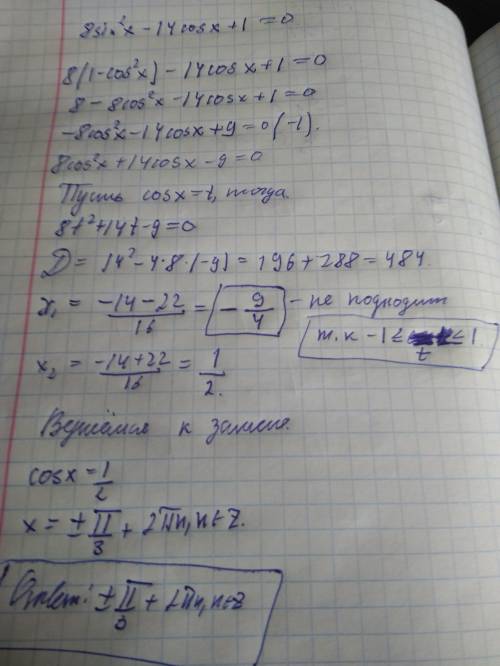 8sin²x - 14cosx + 1 = 0
8(1-cos²x) - 14cosx + 1 = 0
8 - 8cos²x - 14cosx + 1 = 0
-8cos²x - 14cosx + 9 = 0 (-1).
8cos²x + 14cosx - 9 = 0
Пусть cosx = t, тогда
8t² + 14t - 9 = 0
D = 14² - 4·8·(-9) = 196 + 288 = 484.
x₁ = (-14-22)/16 = -9/4 - не подходит
т.к -1 ≤ t ≤ 1
x₂ = (-14+22)/16 = 1/2.
Вернёмся к замене.
cosx = 1/2
x = ±π/3 + 2πn, n∈Z.
Ответ: ±π/3 + 2πn, n∈Z